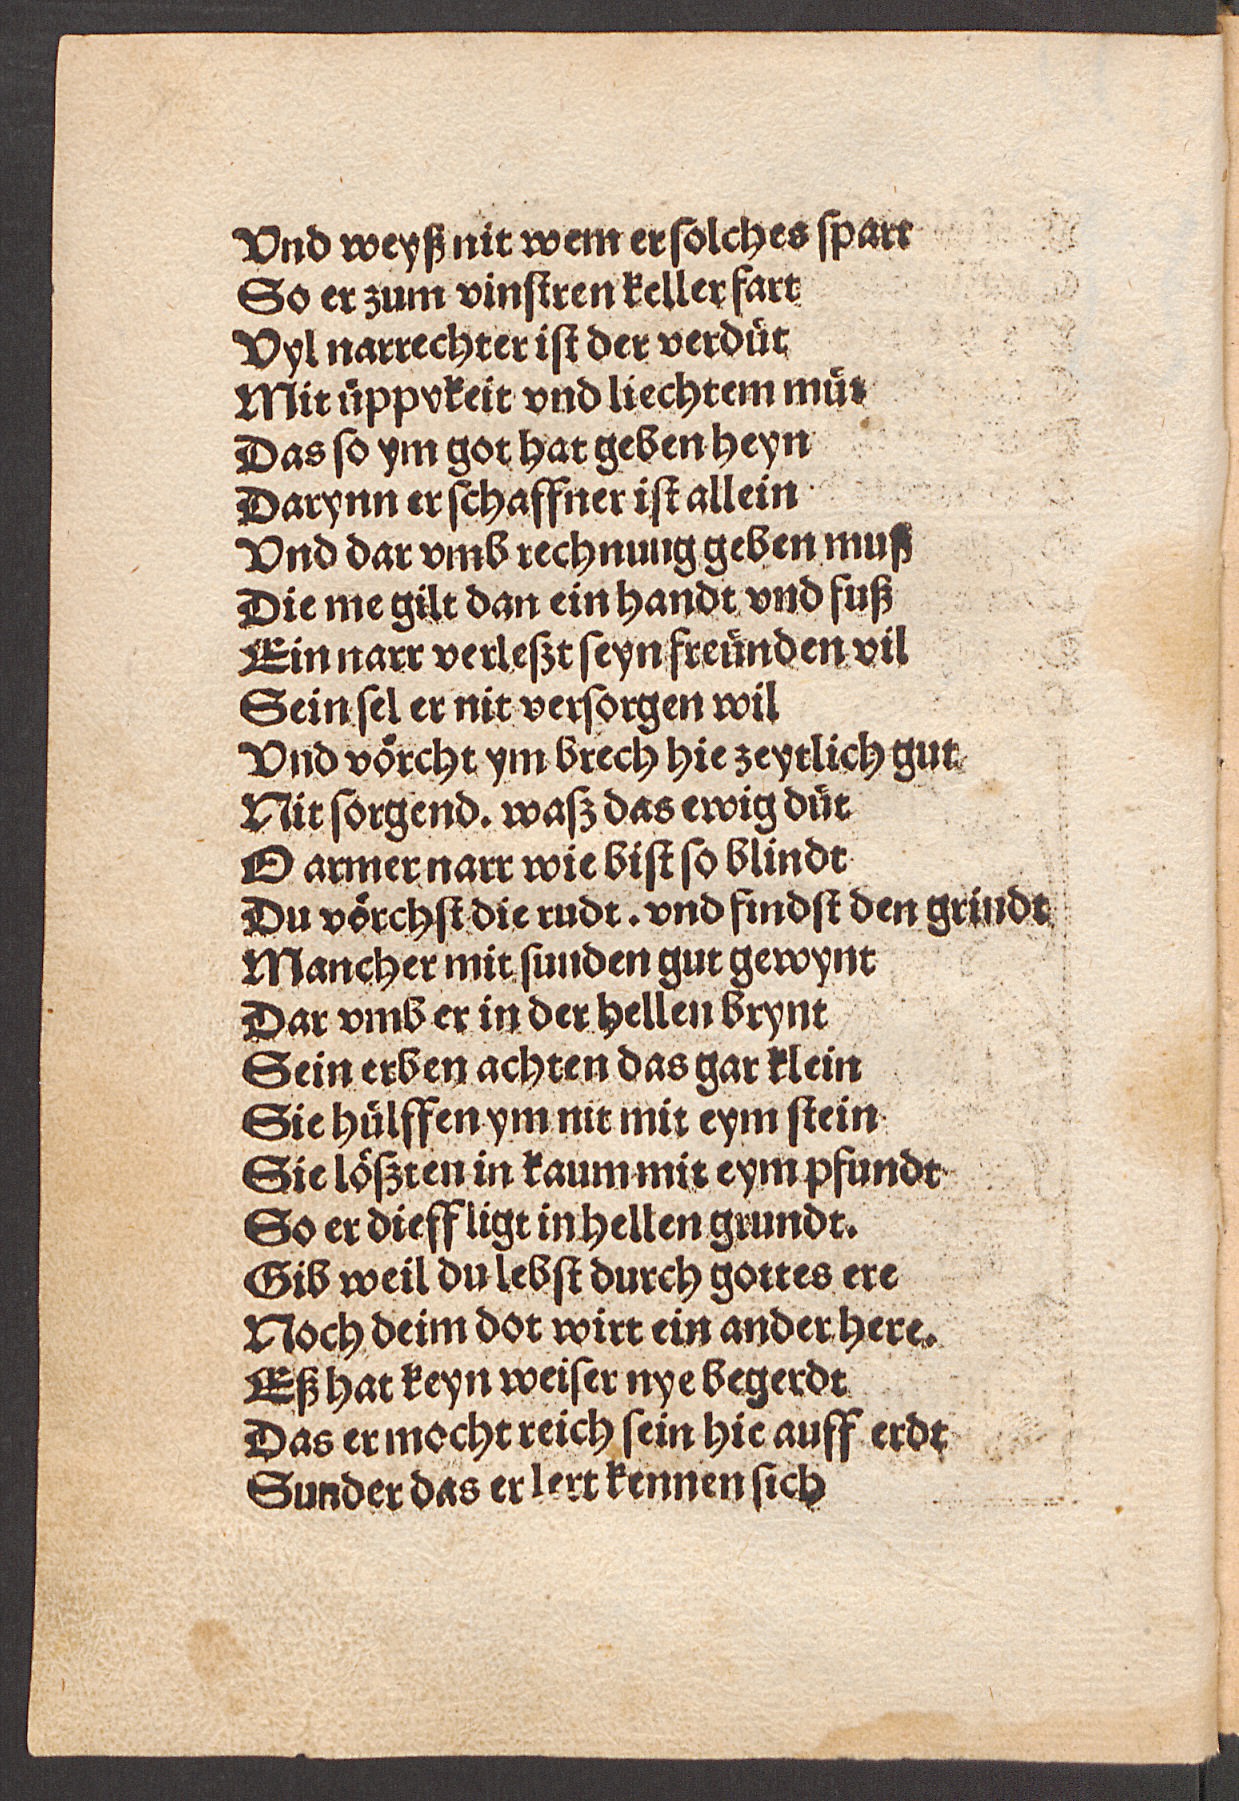 Vnd weyß nit wem er solches spart
So er zum vinstren keller fart
Vyl narrechter ist der verdüt
Mit üppykeit vnd liechtem müt
Das so ym got hat geben heyn
Darynn er schaffner ist allein
Vnd dar vmb rechnung geben muß
Die me gilt dan ein handt vnd fuß
Ein narr verleszt seyn freünden vil
Sein sel er nit versorgen wil
Vnd vörcht ym brech hie zeytlich gut
Nit sorgend. wasz das ewig düt
O armer narr wie bist so blindt
Du vörchst die rudt. vnd findst den grindt
Mancher mit sunden gut gewynt
Dar vmb er in der hellen brynt
Sein erben achten das gar klein
Sie hülffen ym nit mit eym stein
Sie löszten in kaum mit eym pfundt
So er dieff ligt in hellen grundt.
Gib weil du lebst durch gottes ere
Noch deim dot wirt ein ander here.
Eß hat keyn weiser nye begerdt
Das er mocht reich sein hie auff erdt
Sunder das er lert kennen sich